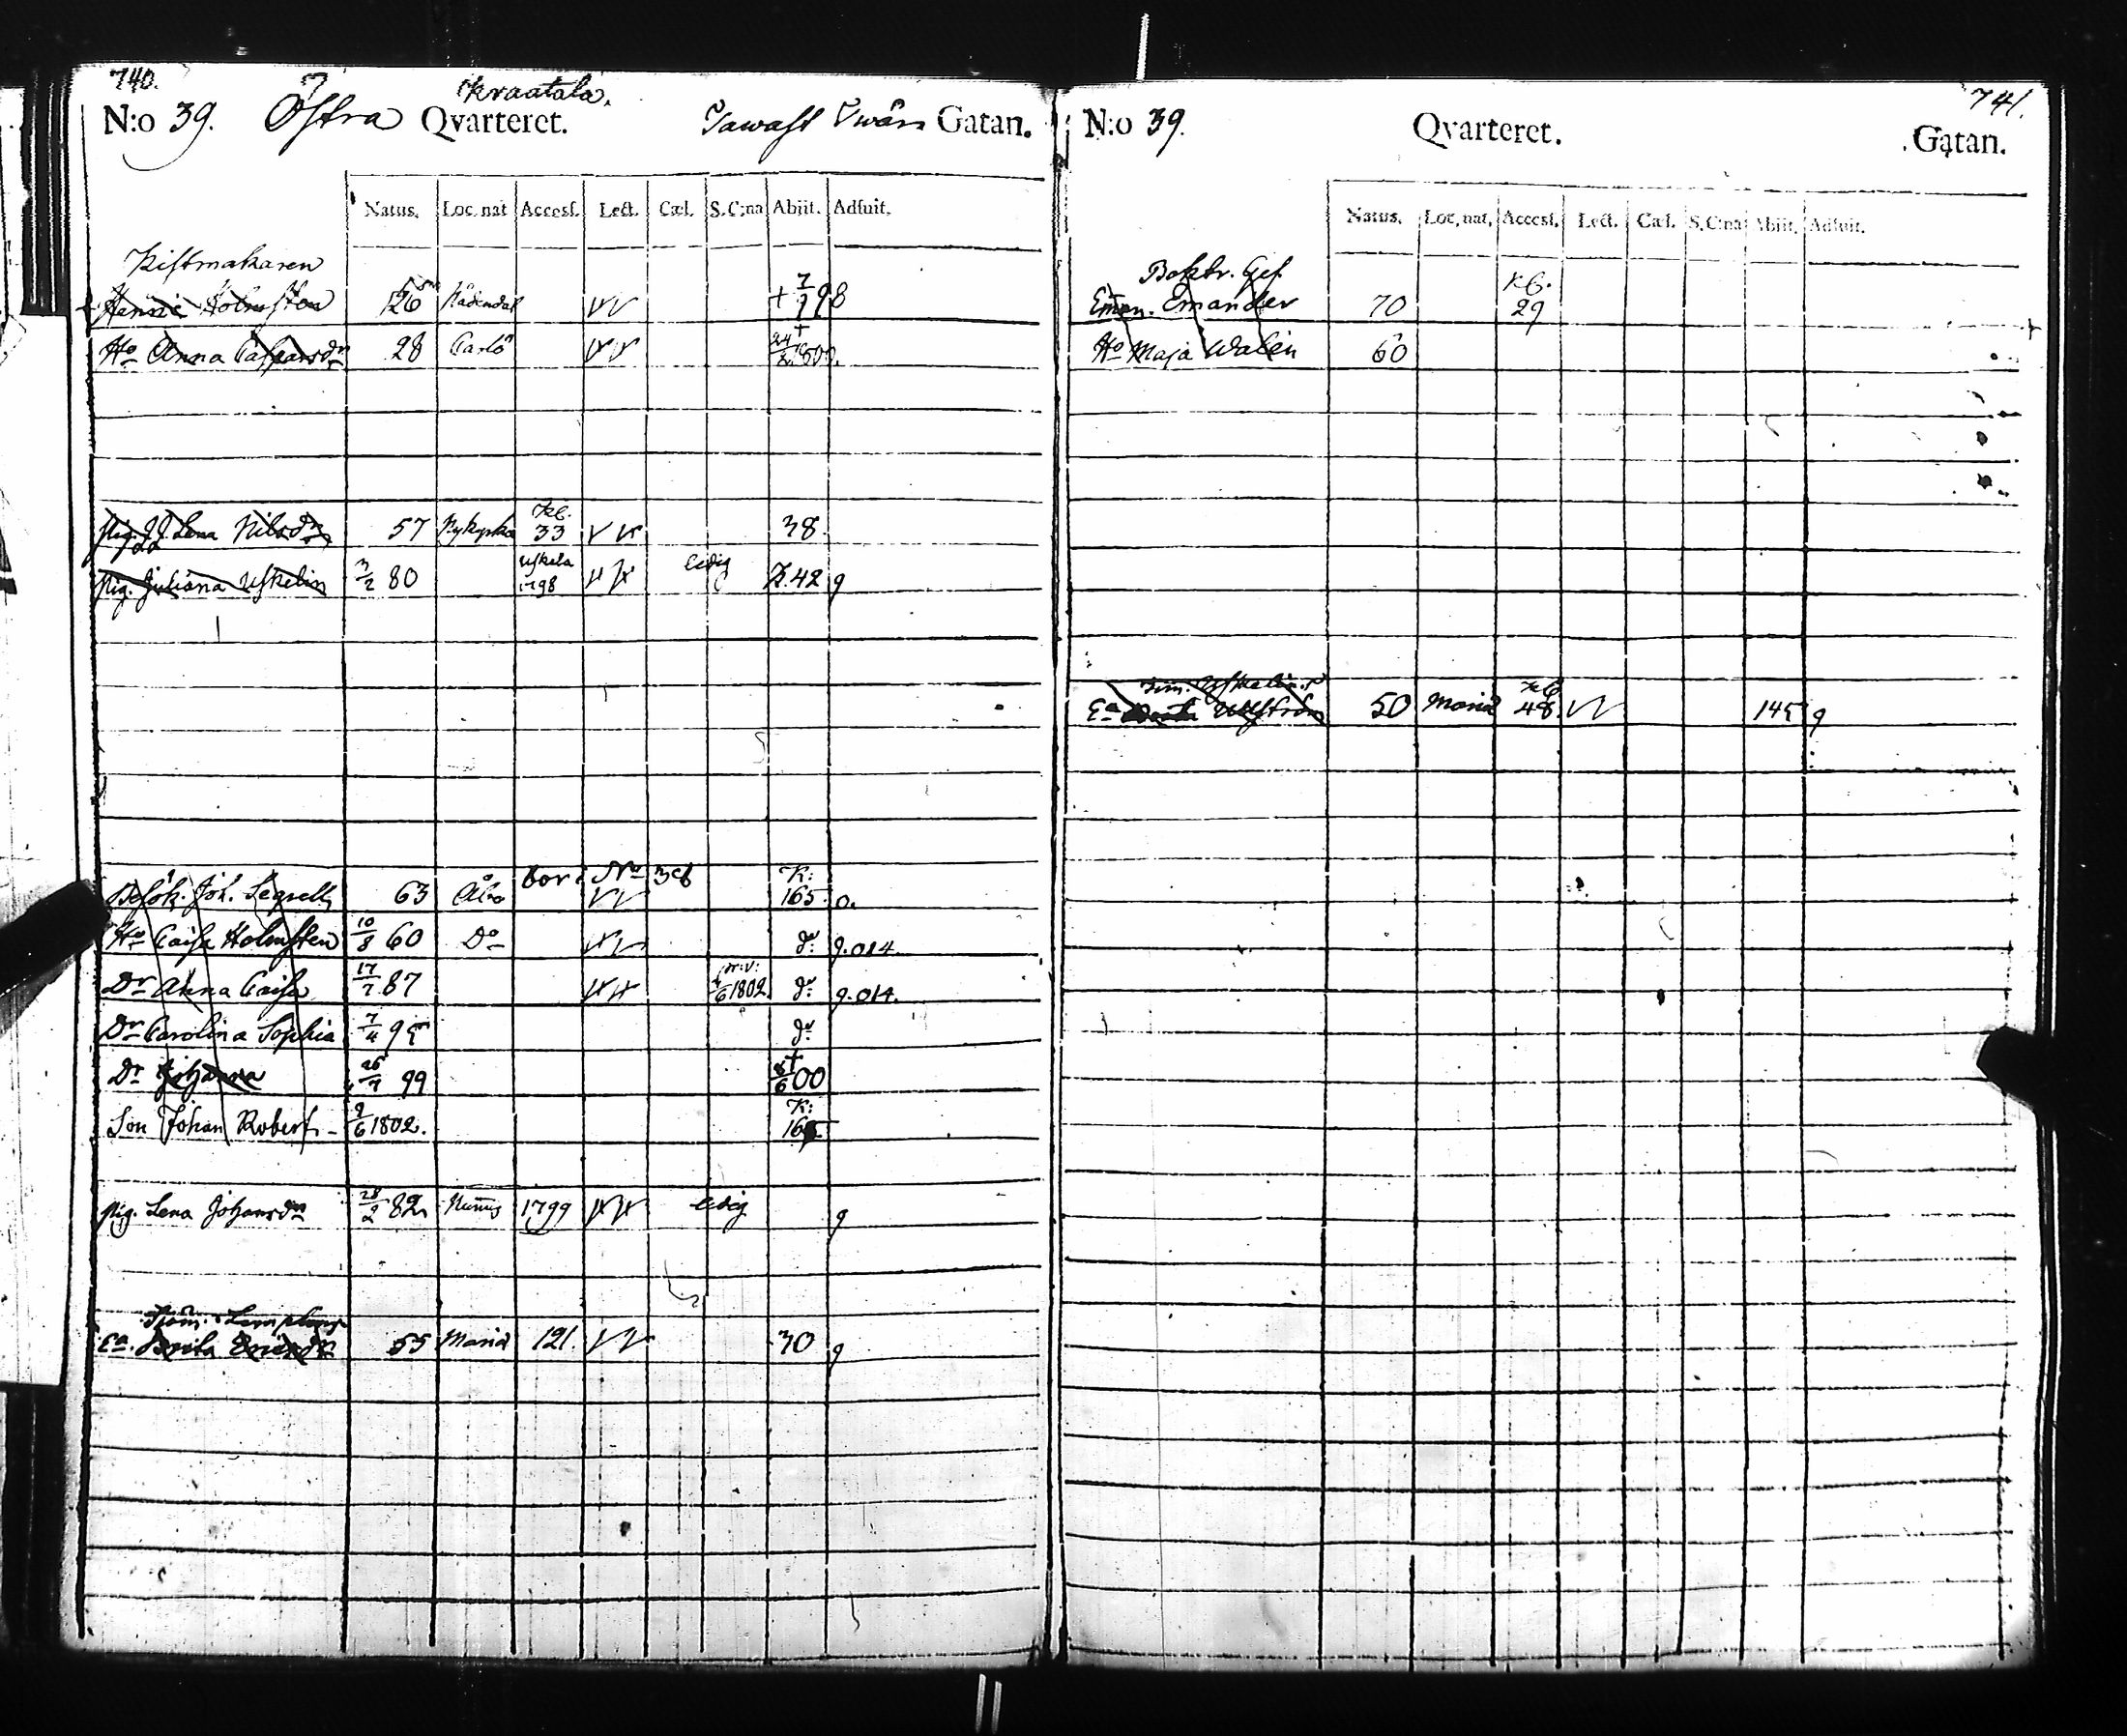 740.
N:o 39. Östra Kraatala. Qvarteret. Tawast Twärs Gatan.
Natus. Loc. nat Accesſ. Lect. Cæl. S.C:na Abiit. Adfuit.
Kistmakaren
Holmsten 26 Nådendal + 7/1 98
Ho Anna Caspersdr 28 Carlö + 24/2 1800.
Kb.
Pig. Lena Nilsdr 57 Nykyrka 33 38.
Pig. Juliana Uskelin 3/2 80 Uskela 1798 ledig K.42 g
bor i No 38
Besök. Joh. Segrell 63 Åbo K: 165. o.
Ho Caisa Holmsten 10/8 60 Do do: g.014.
Dr Anna Caisa 17/7 87 n.v: 6 1802 do: g.014.
Dr Carolina Sophia 7/4 95 do
Dr Johanna 26/7 99 + 8/6 00
Son Johan Robert - 9/6 1802. K: 165
Pig. Lena Johansdr 28/2 82 Numis 1799 ledig g
Ea. Brita Ericsdr 55 Mariæ 121. 30 g
741.
N:o 39. Qvarteret. Gatan.
Natus. Loc. nat, Accesſ. Lect. Cæl. S.C:na Abiit. Adfuit.
Boktr. Ges.
Eman. Emander 70 Kb. 29
Ho Maja Walen 60
Tim. Uskelin
Ea Ulfström 50 Mariæ Kb 48. 145 g